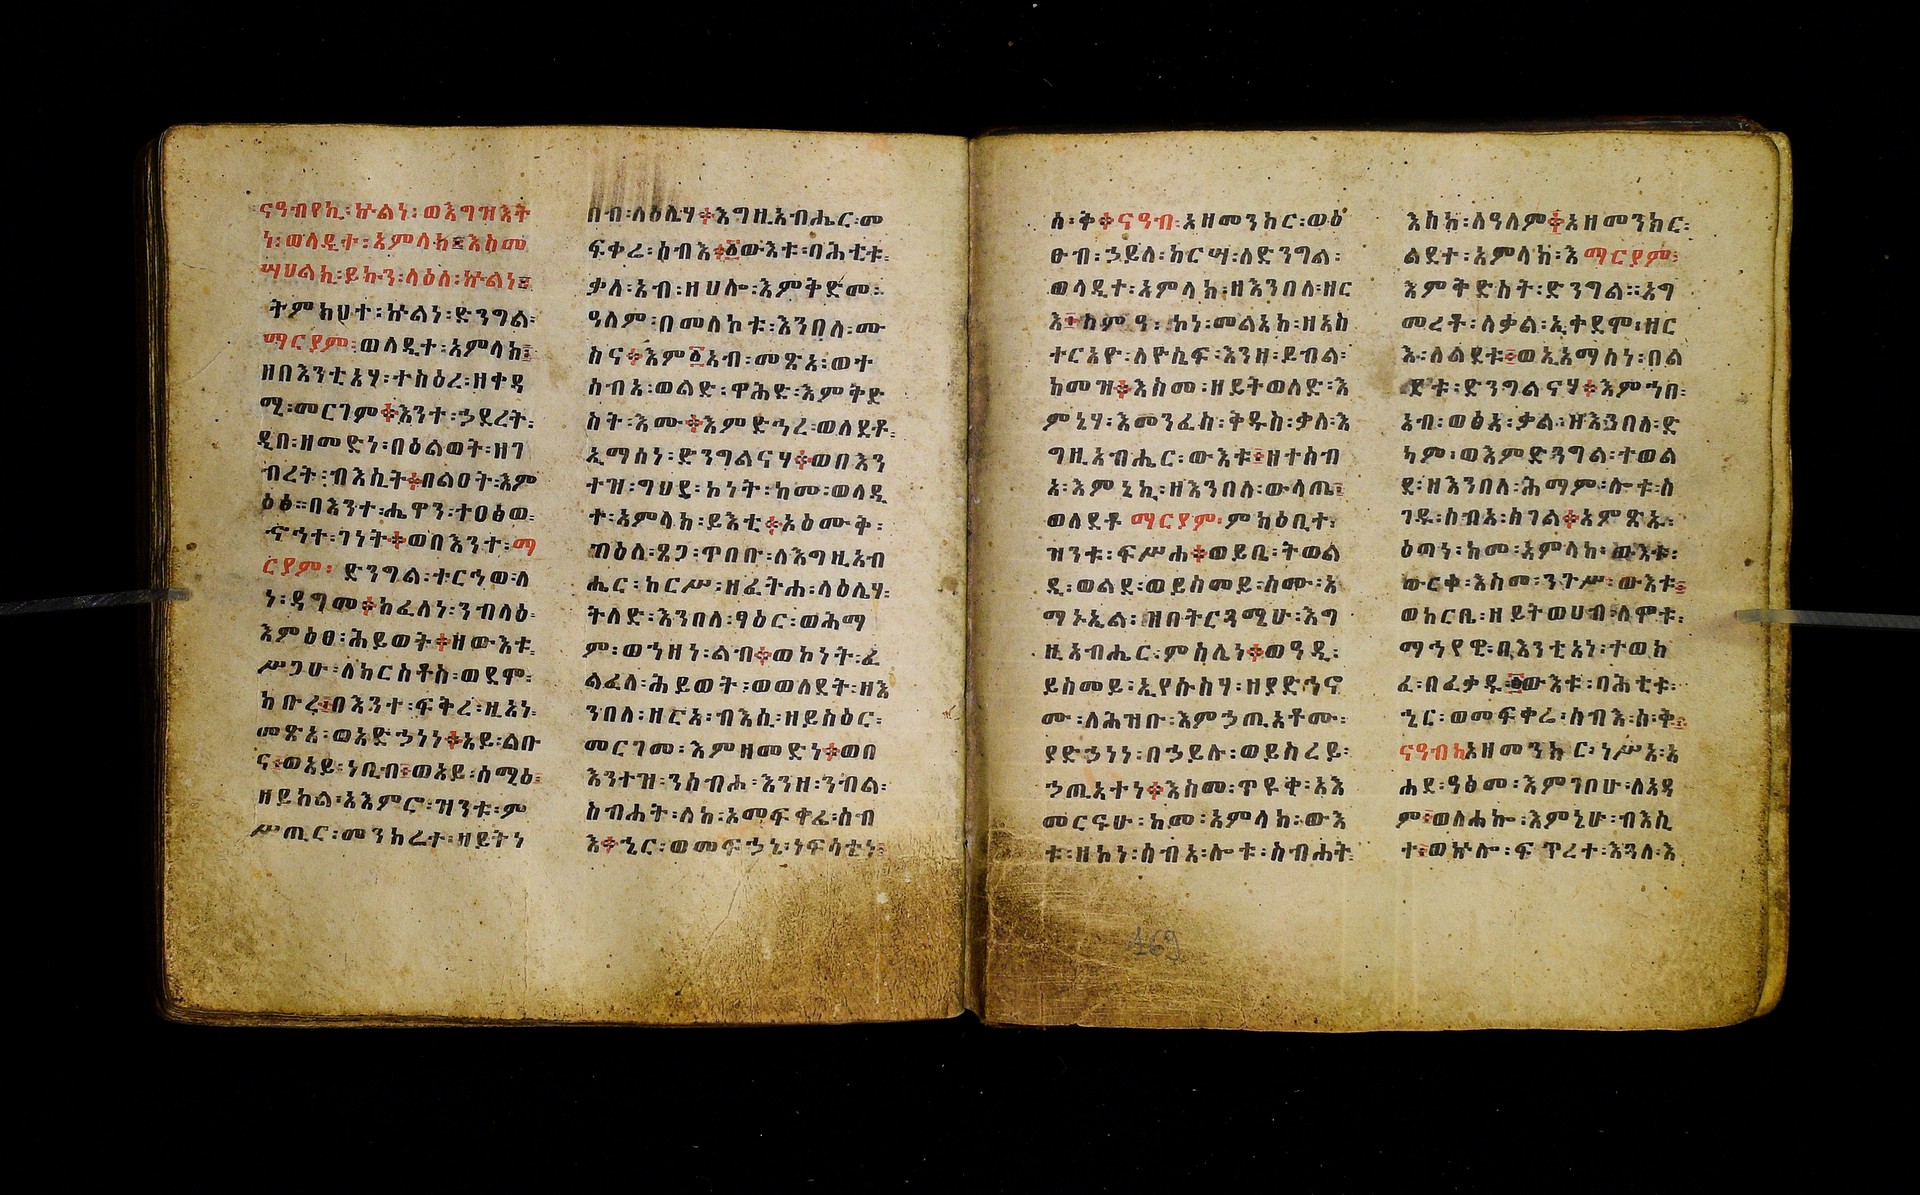 ናዓብየኪ፡ ኵልነ፡ ወእግዝእት
ነ፡ ወላዲተ፡ አምላክ። እስመ
ሣህልኪ፡ ይኩን፡ ላዕለ፡ ኵልነ።
ትምክህተ፡ ኵልነ፡ ድንግል፡
ማርያም፡ ወላዲተ፡ አምላክ፡
ዘበእንቲአሃ፡ ተስዕረ፡ ዘቀዳ
ሚ፡ መርገም፨ እንተ፡ ኃደረት፡
ዲበ፡ ዘመድነ፡ በዕልወት፡ ዘገ
ብረት፡ ብእሲት፨ በልዐት፡ እም
ዕፅ። በእንተ፡ ሔዋን፡ ተዐፅወ፡
ኆኅተ፡ ገነት፨ ወበእንተ፡ ማ
ርያም፡ ድንግል፡ ተርኅወ፡ ለ
ነ፡ ዳግመ፨ ከፈለነ፡ ንብላዕ፡
እምዕፀ፡ ሕይወት፨ ዘውእቱ፡
ሥጋሁ፡ ለክርስቶስ፡ ወደሞ፡
ክቡረ፨ በእንተ፡ ፍቅረ፡ ዚአነ፡
መጽአ፡ ወአድኃነነ፨ አይ፡ ልቡ
ና፡ ወአይ፡ ነቢብ፡ ወአይ፡ ሰሚዕ፡
ዘይክል፡ አእምሮ፡ ዝንቱ፡ ም
ሥጢር፡ መንክረተ፡ ዘይትነ
በብ፡ ላዕሌሃ፨ እግዚአብሔር፡ መ
ፍቀሬ፡ ሰብእ፨ ፩ውእቱ፡ ባሕቲቱ፡
ቃለ፡ አብ፡ ዘሀሎ፡ እምቅድመ፡
ዓለም፡ በመለኮቱ፡ እንበለ፡ ሙ
ስና፨ እም፩አብ፡ መጽአ፡ ወተ
ሰብአ፡ ወልድ፡ ዋሕድ፡ እምቅድ
ስት፡ እሙ፨ እምድኅረ፡ ወለደቶ፡
ኢማሰነ፡ ድንግልናሃ፨ ወበእን
ተዝ፡ ግሀደ፡ ከነት፡ ከመ፡ ወላዲ
ተ፡ አምላክ፡ ይእቲ፨ አዕሙቅ፡
ጠዕለ፡ ጸጋ፡ ጥበቡ፡ ለእግዚአብ
ሔር፡ ከርሥ፡ ዘፈትሐ፡ ላዕሌሃ፡
ትለድ፡ እንበለ፡ ፃዕር፡ ወሕማ
ም፡ ወኀዘነ፡ ልብ፨ ወከነት፡ ፈ
ልፈለ፡ ሕይወት፡ ወወለደት፡ ዘእ
ንበለ፡ ዘርአ፡ ብእሲ፡ ዘይስዕር፡
መርገመ፡ እምዘመድነ፨ ወበ
እንተዝ፡ ንሰብሖ፡ እንዘ፡ ንብል፡
ስብሐት፡ ለከ፡ አመፍቀሬ፡ ሰብ
እ፨ ኄር፡ ወመፍኃኒ፡ ነፍሳቲነ፡
ስ፡ ቅ፨ ናዓብ፡ አዘመንክር፡ ወዕ
ፁብ፡ ኃይለ፡ ከርሣ፡ ለድንግል፡
ወላዲተ፡ አምላክ፡ ዘእንበለ፡ ዘር
እ፨ ከምዓ፡ ኮነ፡ መልአክ፡ ዘአስ
ተርአዮ፡ ለዮሴፍ፡ እንዘ፡ ይብል፡
ከመዝ፨ እስመ፡ ዘይትወለድ፡ እ
ምኔሃ፡ እመንፈስ፡ ቅዱስ፡ ቃለ፡ እ
ግዚአብሔር፡ ውእቱ፡ ዘተሰብ
አ፡ እምኔኪ፡ ዘእንበለ፡ ውላጤ፡
ወለደቶ ማርያም፡ ምክዕቢተ፡
ዝንቱ፡ ፍሥሐ፨ ወይቤ፡ ትወል
ዲ፡ ወልደ፡ ወይሰመይ፡ ስሙ፡ አ
ማኑኢል፡ ዝበትርጓሜሁ፡ እግ
ዚአብሔር፡ ምስሌነ፨ ወዓዲ፡
ይሰመይ፡ ኢየሱስሃ፡ ዘያድኅኖ
ሙ፡ ለሕዝቡ፡ እምኃጢአቶሙ፡
ያድኃነነ፡ በኃይሉ፡ ወይስረይ፡
ኃጢአተነ፨ እስመ፡ ጥዩቀ፡ አእ
መርናሁ፡ ከመ፡ አምላክ፡ ውእ
ቱ፡ ዘኮነ፡ ሰብአ፡ ሎቱ፡ ስብሐት፡
እስከ፡ ለዓለም፨ አዘመንክር፡
ልደተ፡ አምላክ፡ እማርያም፡
እምቅድስት፡ ድንግል። አግ
መረቶ፡ ለቃል፡ ኢተደሞ፡ ዘር
እ፡ ለልደቱ፡ ወኢአማሰነ፡ በል
ደቱ፡ ድንግልናሃ፨ እምኀበ፡
አብ፡ ወፅአ፡ ቃል፡ ዘእንበለ፡ ድ
ካም፡ ወእምድንግል፡ ተወል
ደ፡ ዘእንበለ፡ ሕማም፡ ሎቱ፡ ሰ
ገዱ፡ ሰብአ፡ ሰገል፨ አምጽኡ፡
ዕጣነ፡ ከመ፡ አምላክ፡ ውእቱ፡
ወርቀ፡ እስመ፡ ንጉሥ፡ ውእቱ፡
ወከርቤ፡ ዘይትወሀብ፡ ለሞቱ፡
ማኅየዊ፡ በእንቲአነ፡ ተወክ
ፈ፡ በፈቃዱ፡ ፩ውእቱ፡ ባሕቲቱ፡
ኄር፡ ወመፍቀሬ፡ ሰብእ፡ ስ፡ ቅ፡
ናዓብከ አዘመንክር፡ ነሥአ፡ አ
ሐደ፡ ዓፅመ፡ እምገቦሁ፡ ለአዳ
ም፡ ወለሐኰ፡ እምኔሁ፡ ብእሲ
ተ፡ ወኵሎ፡ ፍጥረተ፡ እጓለ፡ እ